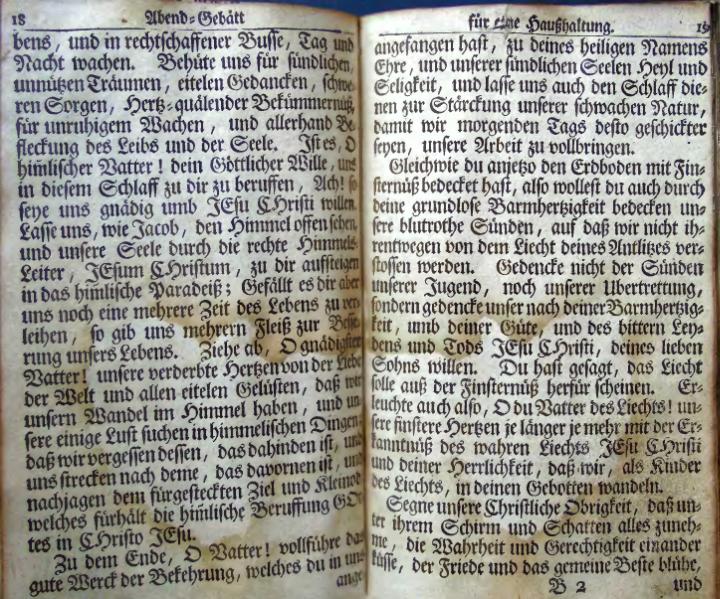 18 Abend-Gebätt
bens, und in rechtschaffener Busse, Tag und
Nacht wachen. Behüte uns für sündlichen,
unnützen Träumen, eitelen Gedancken, schwe-
ren Sorgen, Hertz-quälender Bekümmernüß,
für unruhigem Wachen, und allerhand Be-
fleckung des Leibs und der Seele. Ist es, O
him̅lischer Vatter! dein Göttlicher Wille, uns
in diesem Schlaff zu dir zu beruffen, Ach! so
seye uns gnädig umb JEsu CHristi willen.
Lasse uns, wie Jacob, den Himmel offen sehen,
und unsere Seele durch die rechte Himmels-
Leiter, JEsum CHristum, zu dir aufsteigen
in das him̅lische Paradeiß; Gefällt es dir aber
uns noch eine mehrere Zeit des Lebens zu ver-
leihen, so gib uns mehrern Fleiß zur Besse-
rung unsers Lebens. Ziehe ab, O gnädigster
Vatter! unsere verderbte Hertzen von der Liebe
der Welt und allen eitelen Gelüsten, daß wir
unsern Wandel im Himmel haben, und un-
sere einige Lust suchen in himmelischen Dingen,
daß wir vergessen dessen, das dahinden ist, und
uns strecken nach deme, das davornen ist, und
nachjagen dem fürgesteckten Ziel und Kleinod
welches fürhält die him̅lische Beruffung GOt-
tes in CHristo JEsu.
Zu dem Ende, O Vatter! vollführe das
gute Werck der Bekehrung, welches du in uns
ange
für eine Haußhaltung. 19
angefangen hast, zu deines heiligen Namens
Ehre, und unserer sündlichen Seelen Heyl und
Seligkeit, und lasse uns auch den Schlaff die-
nen zur Stärckung unserer schwachen Natur,
damit wir morgenden Tags desto geschickter
seyen, unsere Arbeit zu vollbringen.
Gleichwie du anjetzo den Erdboden mit Fin-
sternüß bedecket hast, also wollest du auch durch
deine grundlose Barmhertzigkeit bedecken un-
sere blutrothe Sünden, auf daß wir nicht ih-
rentwegen von dem Liecht deines Antlitzes ver-
stossen werden. Gedencke nicht der Sünden
unserer Jugend, noch unserer Ubertrettung,
sondern gedencke unser nach deiner Barmhertzig-
keit, umb deiner Güte, und des bittern Ley-
dens und Tods JEsu CHristi, deines lieben
Sohns willen. Du hast gesagt, das Liecht
solle auß der Finsternüß herfür scheinen. Er-
leuchte auch also, O du Vatter des Liechts! un-
sere finstere Hertzen je länger je mehr mit der Er-
kanntnüß des wahren Liechts JEsu CHristi
und deiner Herrlichkeit, daß wir, als Kinder
des Liechts, in deinen Gebotten wandeln.
Segne unsere Christliche Obrigkeit, daß un-
ter ihrem Schirm und Schatten alles zuneh-
me, die Wahrheit und Gerechtigkeit einander
küsse, der Friede und das gemeine Beste blühe,
B 2 und